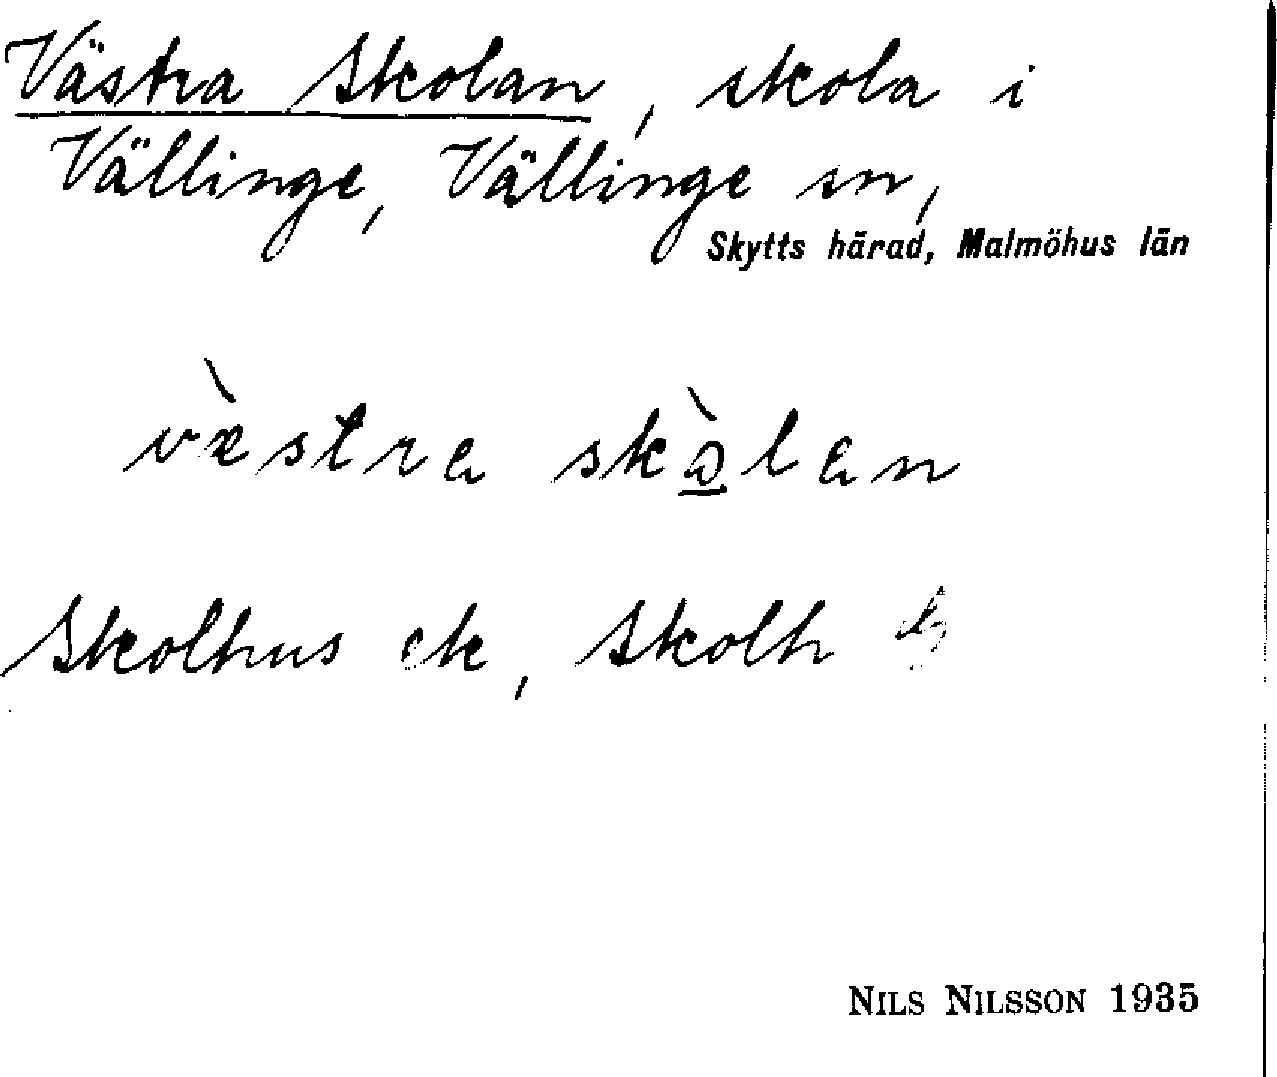 Västra Skolan, skola i
Vällinge, Vällinge sn,
Skytts härad, Malmöhus län
væ̀stra skò̱lan
Skolhus ek, Skolh
NILS NILSSON 1935